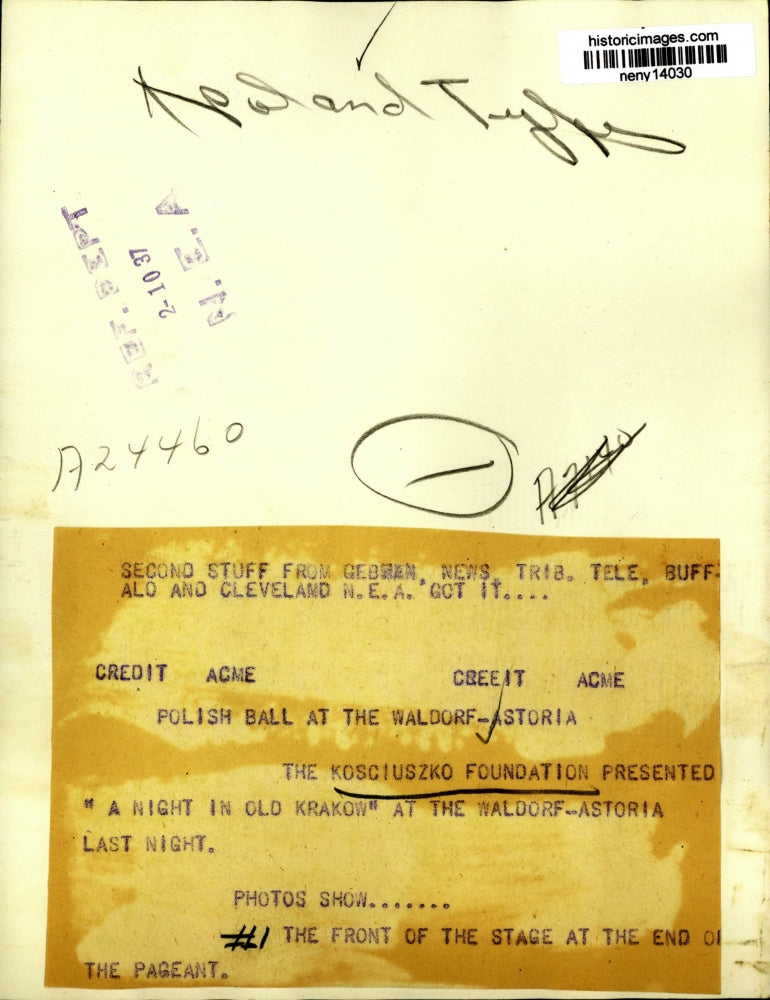 historicimages.com
neny14030
Poland
REF. DEPT.
2-10 37
N.E.A
A24460
1
SECOND STUFF FROM GEBMAN, NEWS, TRIB. TELE, BUFF-
ALO AND CLEVELAND N.E.A. GOT IT....
CREDIT ACME CREEIT ACME
POLISH BALL AT THE WALDORF-ASTORIA
THE KOSCIUSZKO FOUNDATION PRESENTED
" A NIGHT IN OLD KRAKOW" AT THE WALDORF-ASTORIA
LAST NIGHT.
PHOTOS SHOW........
#1 THE FRONT OF THE STAGE AT THE END
THE PAGEANT.